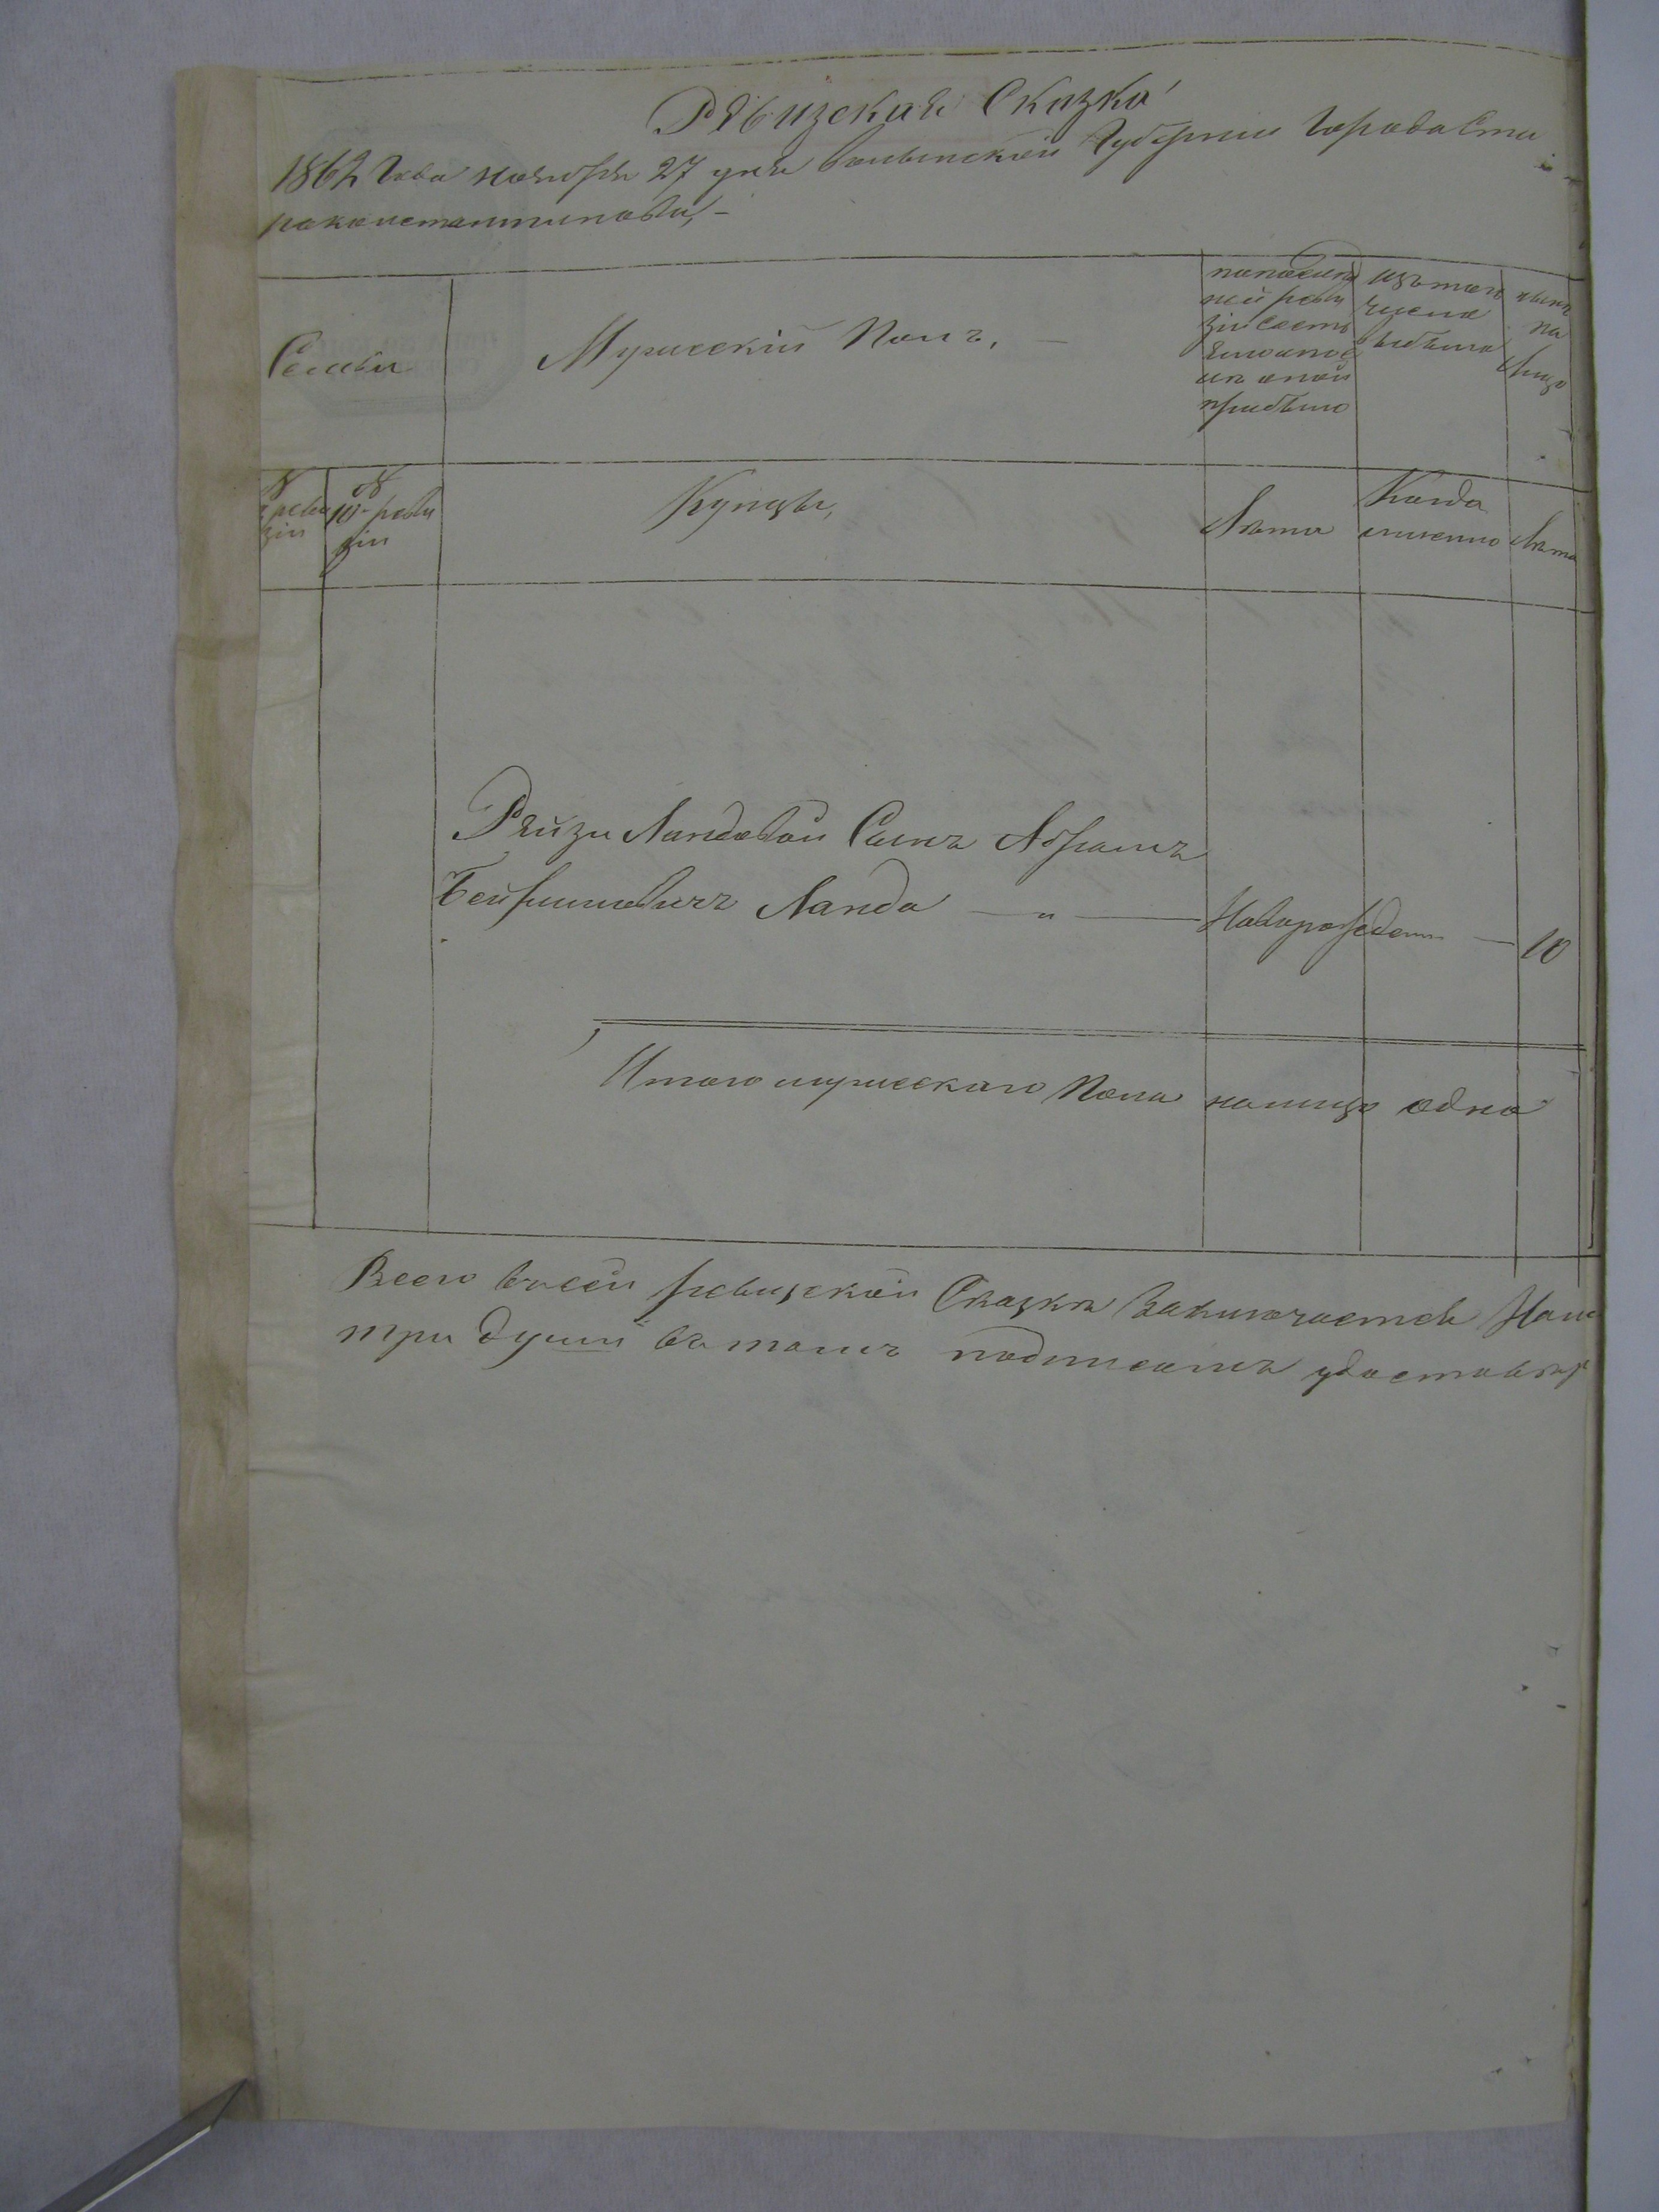 Рѣвизская Сказка
1862 Года Ноября 27 дня Волынской Губерніи Города Ста
роконстантинова, –
Семьи
Мужескій Полъ, –
по послѣд
ней реви
зіи состо
яло и пос
лѣ оной
прибыло
изъ того
числа
выбыло
нынѣ
на
лицо
№
реви
зіи
№
10й реви
зіи
Купцы,
Лѣта
Когда
именно
Лѣта
Рейзи Ландовой Сынъ Абрамъ
Бейришевичъ Ланда — „ — Новорожден — 10
Итого мужескаго Пола налицо одна
Всего въ сей ревизской Сказкѣ Заключается На
три души въ томъ подписомъ удостовѣр